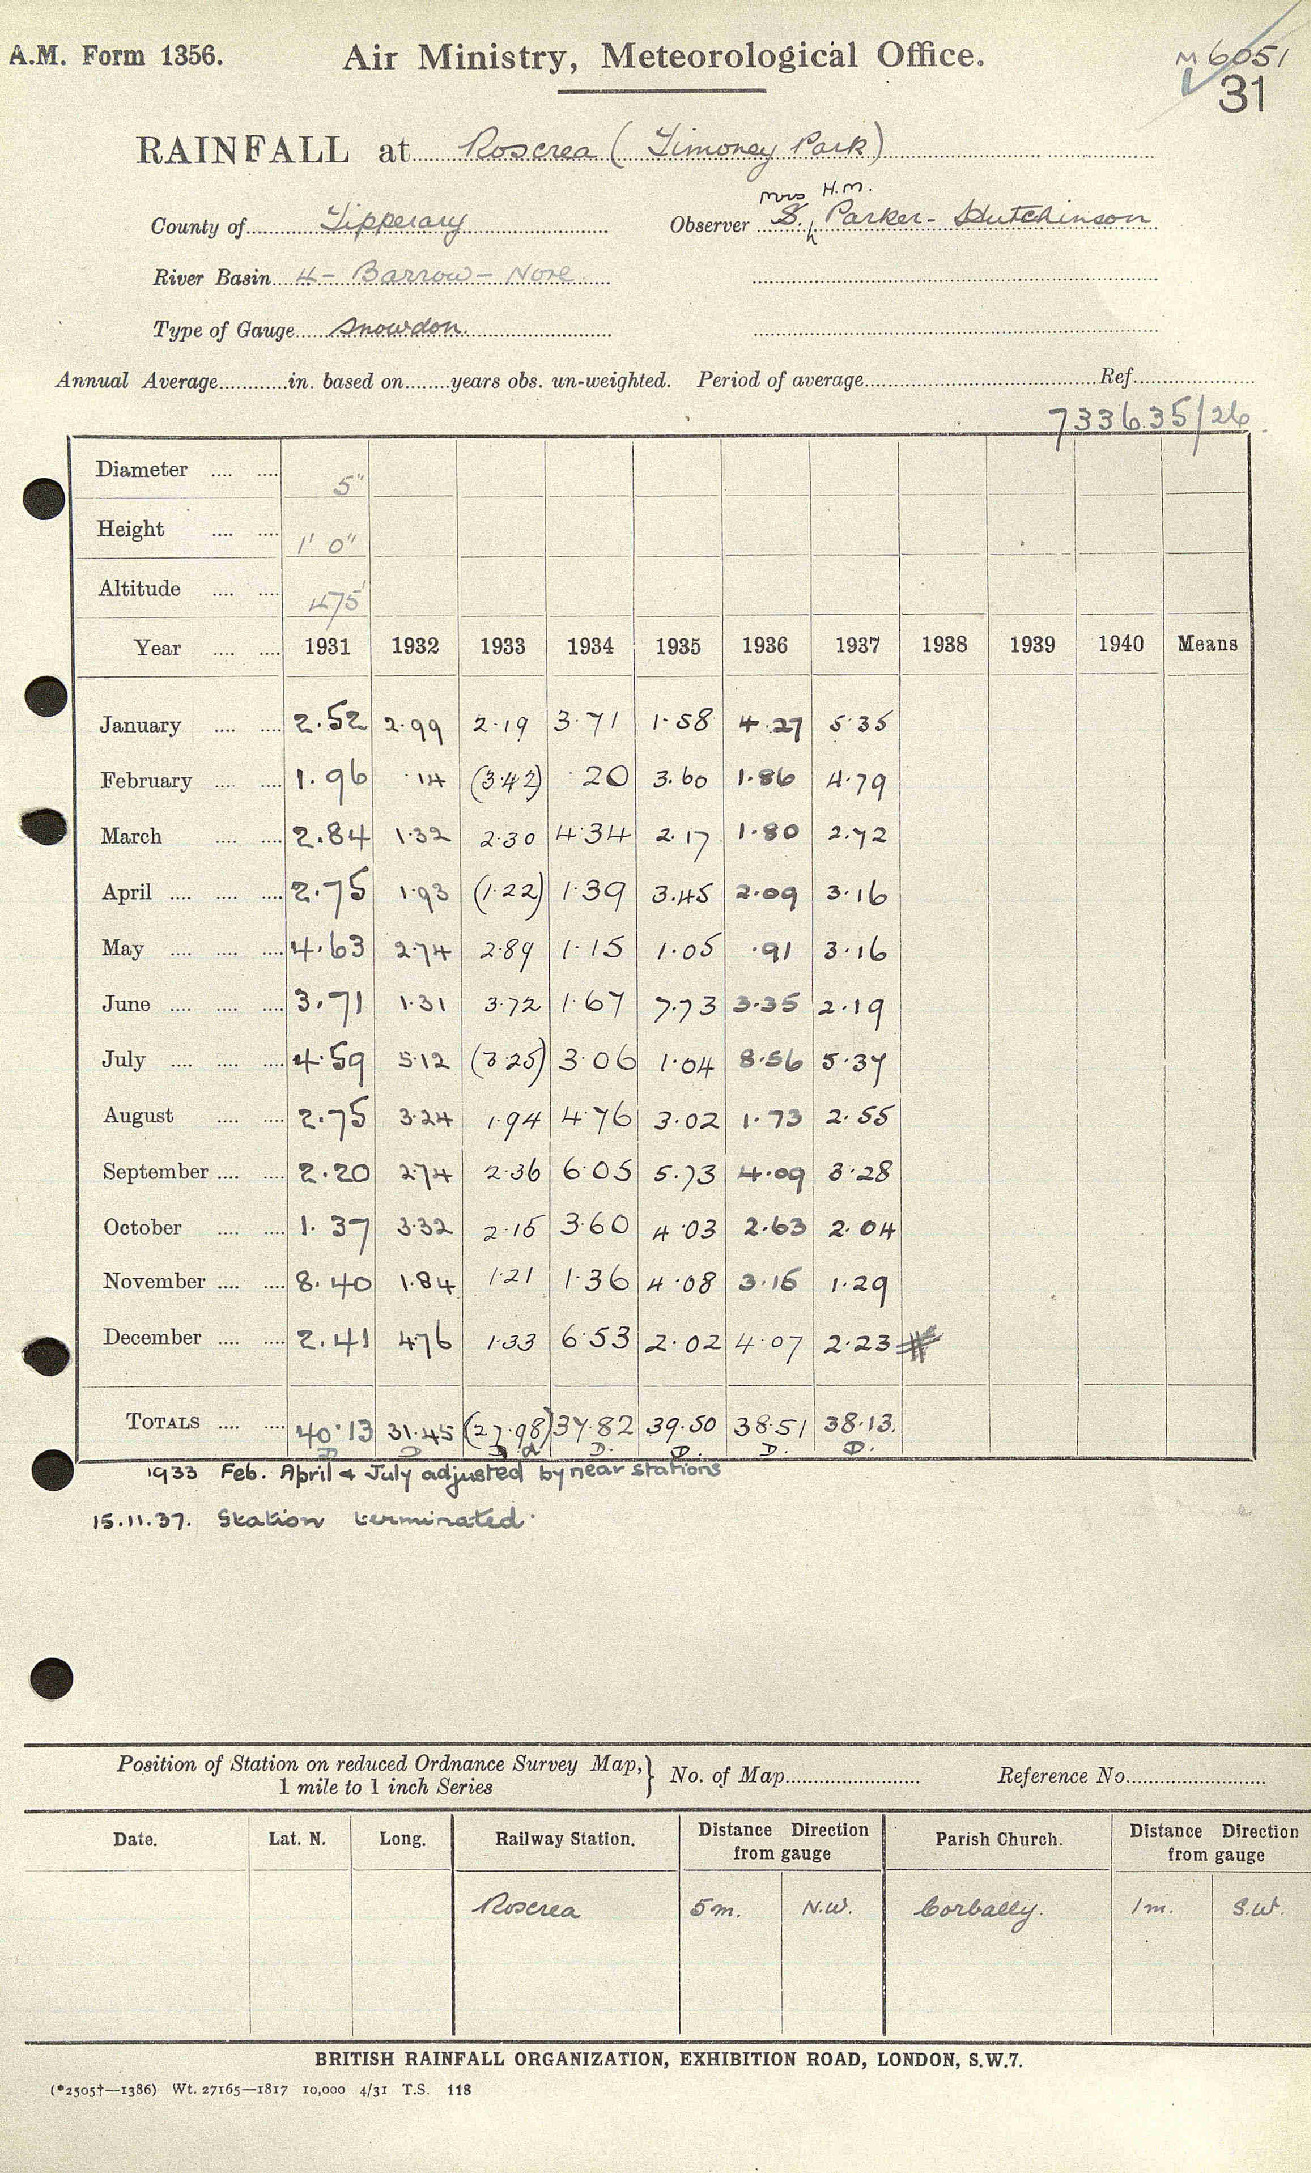 A.M. Form 1356. Air Ministry, Meteorological Office. M 6051
31
RAINFALL at Roscrea (Timoney Park)
Mrs H.M.
County of Tipperary Observer S. Parker-Hutchinson
River Basin 4 - Barrow - Nore
Type of Gauge Snowdon.
Annual Average............in. based on........years obs. un-weighted. Period of average............Ref............
733635/26
Diameter .... .... 5"
Height .... .... 1' 0"
Altitude .... .... 475'
Year .... .... 1931 1932 1933 1934 1935 1936 1937 1938 1939 1940 Means
January .... .... 2.52 2.99 2.19 3.71 1.58 4.27 5.35
February .... .... 1.96 .14 (3.42) .20 3.60 1.86 4.79
March .... .... 2.84 1.32 2.30 4.34 2.17 1.80 2.72
April .... .... .... 2.75 1.93 (1.22) 1.39 3.45 2.09 3.16
May .... .... .... 4.63 2.74 2.89 1.15 1.05 .91 3.16
June .... .... .... 3.71 1.31 3.72 1.67 7.73 3.35 2.19
July .... .... .... 4.59 5.12 (3.25) 3.06 1.04 8.56 5.37
August .... .... 2.75 3.24 1.94 4.76 3.02 1.73 2.55
September .... .... 2.20 2.74 2.36 6.05 5.73 4.09 3.28
October .... .... 1.37 3.32 2.15 3.60 4.03 2.63 2.04
November .... .... 8.40 1.84 1.21 1.36 4.08 3.15 1.29
December .... .... 2.41 4.76 1.33 6.53 2.02 4.07 2.23 #
TOTALS .... .... 40.13 31.45 (27.98) 37.82 39.50 38.51 38.13.
D D D d D. D. D. D.
1933 Feb. April & July adjusted by near stations
15.11.37. Station terminated.
Position of Station on reduced Ordnance Survey Map, } No. of Map............ Reference No............
1 mile to 1 inch Series
Date. Lat. N. Long. Railway Station. Distance Direction from gauge Parish Church. Distance Direction from gauge
Roscrea 5 m. N.W. Corbally. 1 m. S.W.
BRITISH RAINFALL ORGANIZATION, EXHIBITION ROAD, LONDON, S.W.7.
(*2505†—1386) Wt. 27165—1817 10,000 4/31 T.S. 118